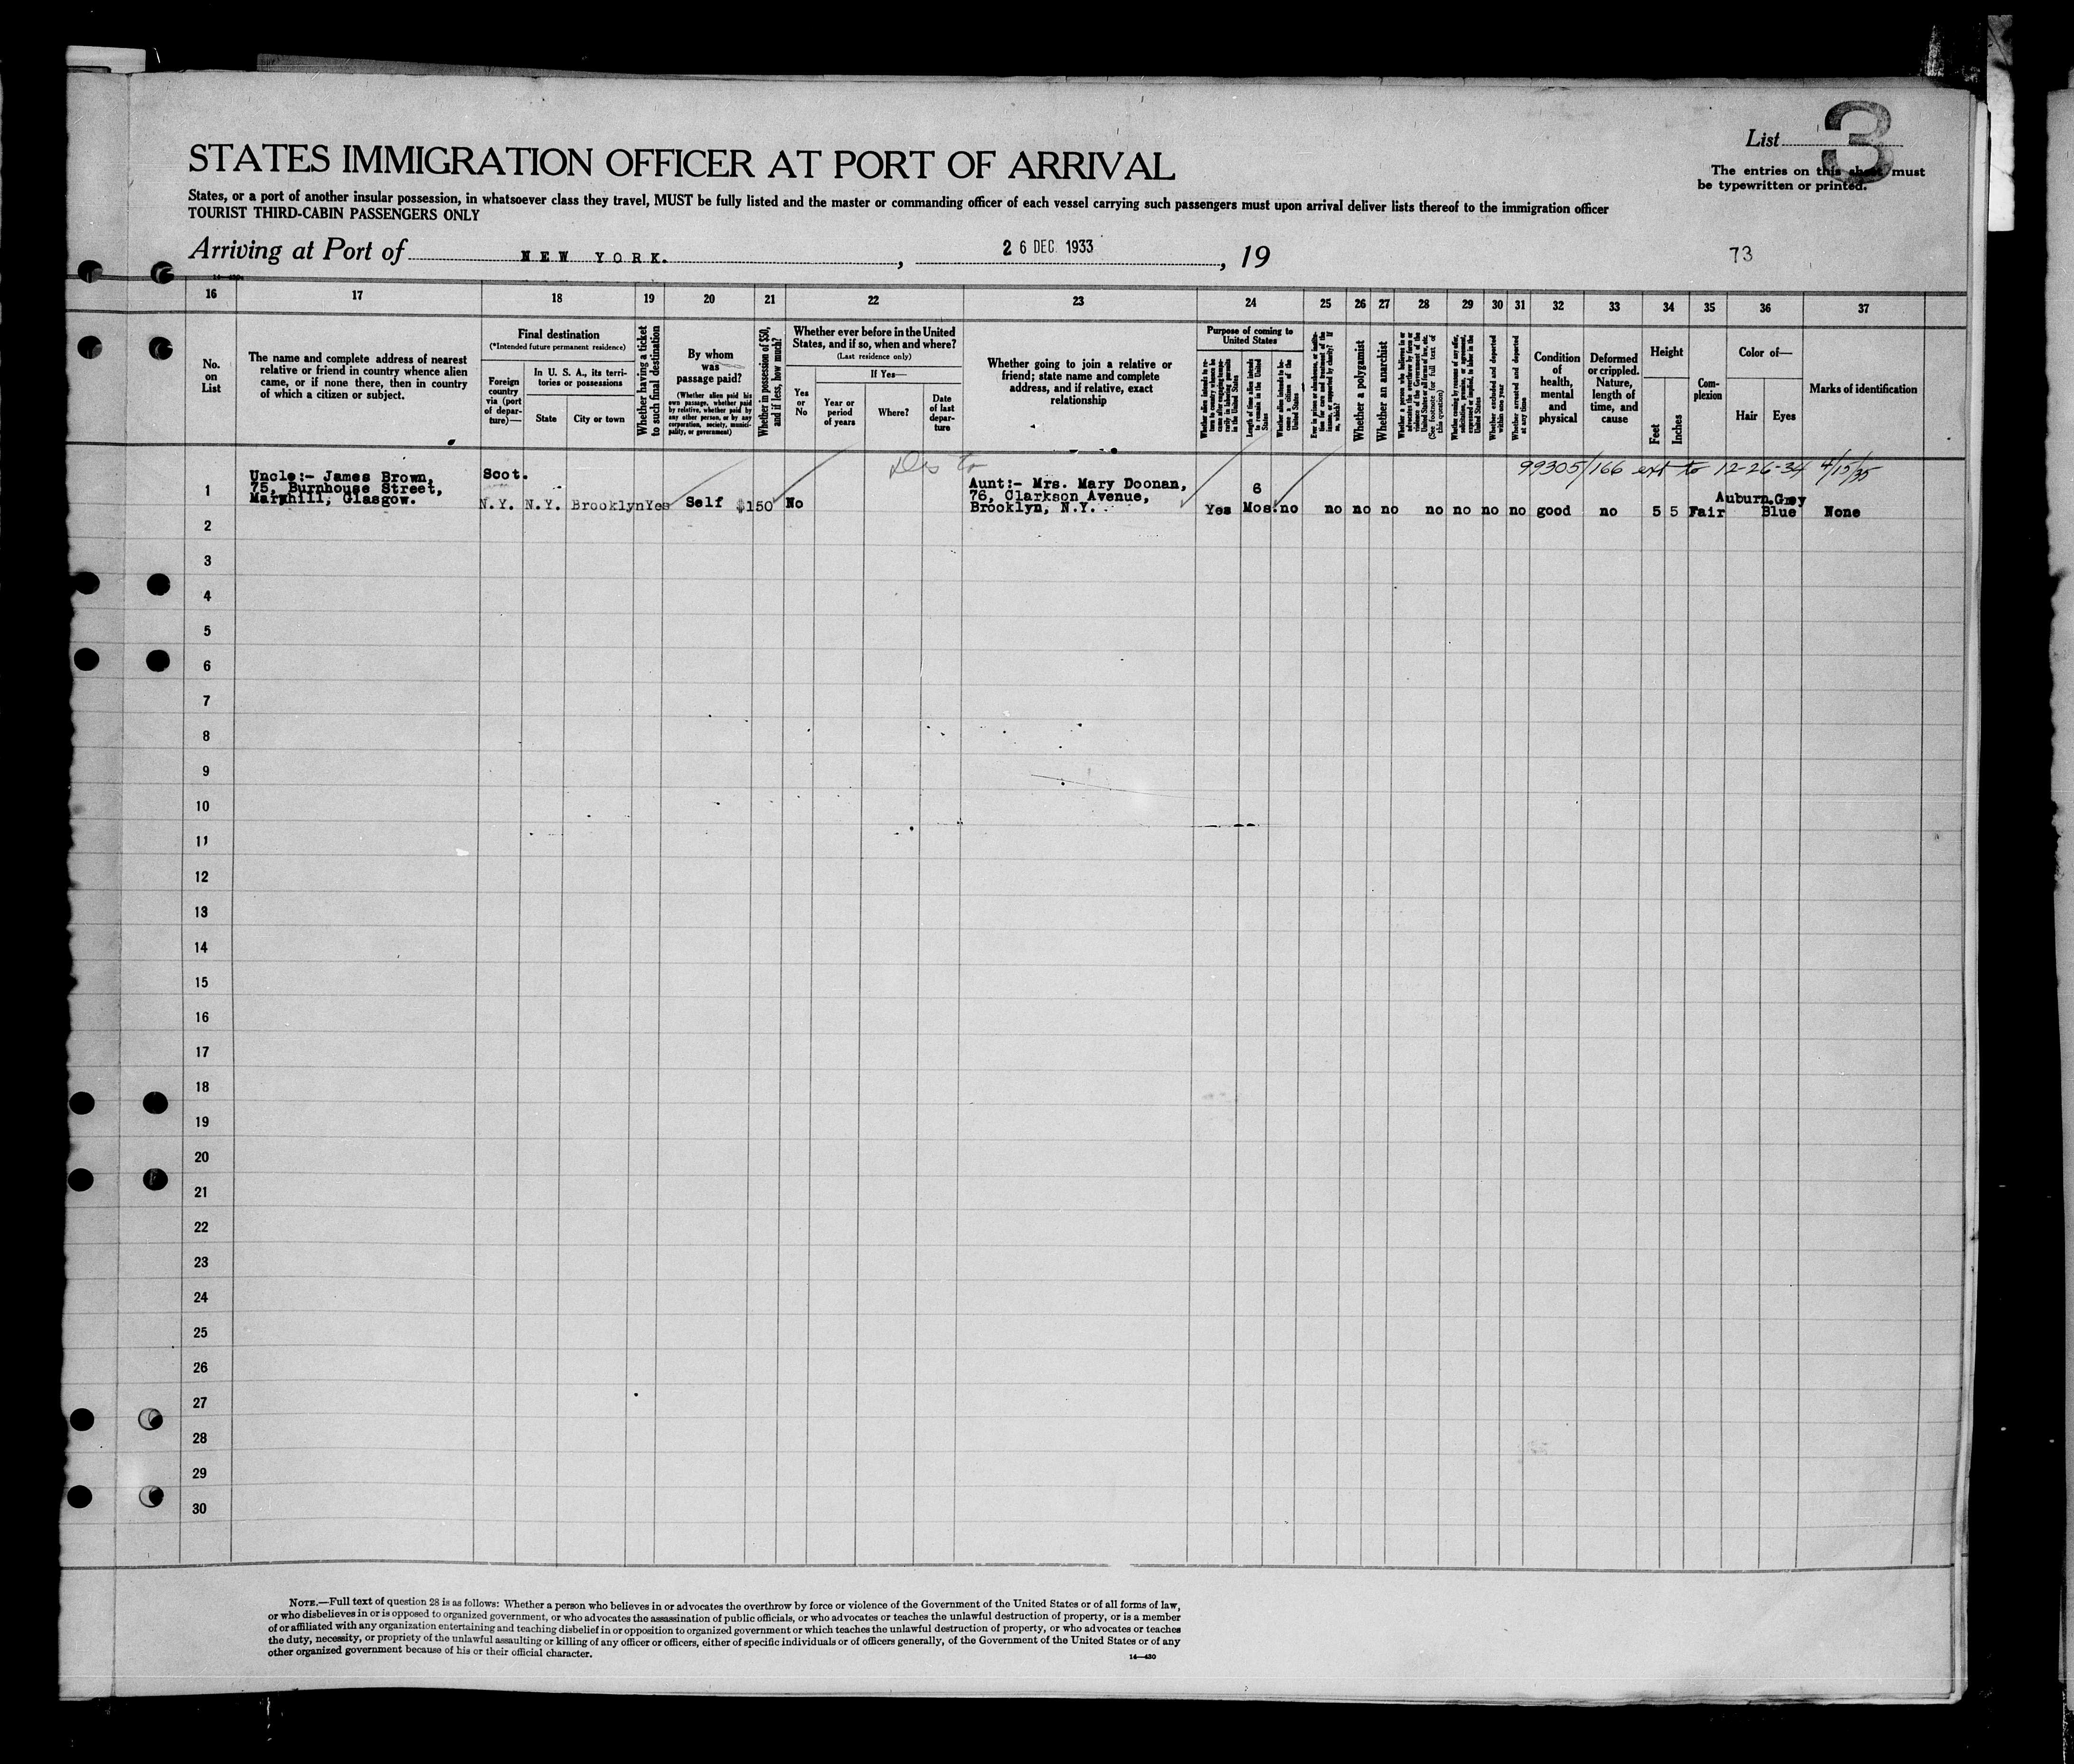 List 3
The entries on this sheet must
be typewritten or printed.
STATES IMMIGRATION OFFICER AT PORT OF ARRIVAL
States, or a port of another insular possession, in whatsoever class they travel, MUST be fully listed and the master or commanding officer of each vessel carrying such passengers must upon arrival deliver lists thereof to the immigration officer
TOURIST THIRD-CABIN PASSENGERS ONLY
Arriving at Port of NEW YORK. , 26 DEC. 1933 , 19
73
16 17 18 19 20 21 22 23 24 25 26 27 28 29 30 31 32 33 34 35 36 37
No.
on
List
The name and complete address of nearest
relative or friend in country whence alien
came, or if none there, then in country
of which a citizen or subject.
Final destination
(*Intended future permanent residence)
Foreign
country
via (port
of depar-
ture)—
In U. S. A., its terri-
tories or possessions
State
City or town
Whether having a ticket
to such final destination
By whom
was
passage paid?
(Whether alien paid his
own passage, whether paid
by relative, whether paid by
any other person, or by any
corporation, society, munici-
pality, or government)
Whether in possession of $50,
and if less, how much?
Whether ever before in the United
States, and if so, when and where?
(Last residence only)
Yes
or
No
If Yes—
Year or
period
of years
Where?
Date
of last
depar-
ture
Whether going to join a relative or
friend; state name and complete
address, and if relative, exact
relationship
Purpose of coming to
United States
Length of time alien intends
to remain in the United
States
Whether alien intends to be-
come a citizen of the
United States
Whether a polygamist
Whether an anarchist
(See footnote for full text of
this question)
Whether excluded and deported
within one year
Whether arrested and deported
at any time
Condition
of
health,
mental
and
physical
Deformed
or crippled.
Nature,
length of
time, and
cause
Height
Feet
Inches
Com-
plexion
Color of—
Hair
Eyes
Marks of identification
99305/166 ext to 12-26-34 4/15/35
1
Uncle:- James Brown,
75, Burnhouse Street,
Maryhill, Glasgow.
Scot.
N.Y. N.Y. Brooklyn Yes Self $150 No
Aunt:- Mrs. Mary Doonan,
76, Clarkson Avenue,
Brooklyn, N.Y.
Yes 6 Mos. no no no no no no no no good no 5 5 Fair Auburn. Grey Blue None
2
3
4
5
6
7
8
9
10
11
12
13
14
15
16
17
18
19
20
21
22
23
24
25
26
27
28
29
30
NOTE.—Full text of question 28 is as follows: Whether a person who believes in or advocates the overthrow by force or violence of the Government of the United States or of all forms of law,
or who disbelieves in or is opposed to organized government, or who advocates the assassination of public officials, or who advocates or teaches the unlawful destruction of property, or is a member
of or affiliated with any organization entertaining and teaching disbelief in or opposition to organized government or which teaches the unlawful destruction of property, or who advocates or teaches
the duty, necessity, or propriety of the unlawful assaulting or killing of any officer or officers, either of specific individuals or of officers generally, of the Government of the United States or of any
other organized government because of his or their official character.
14—430